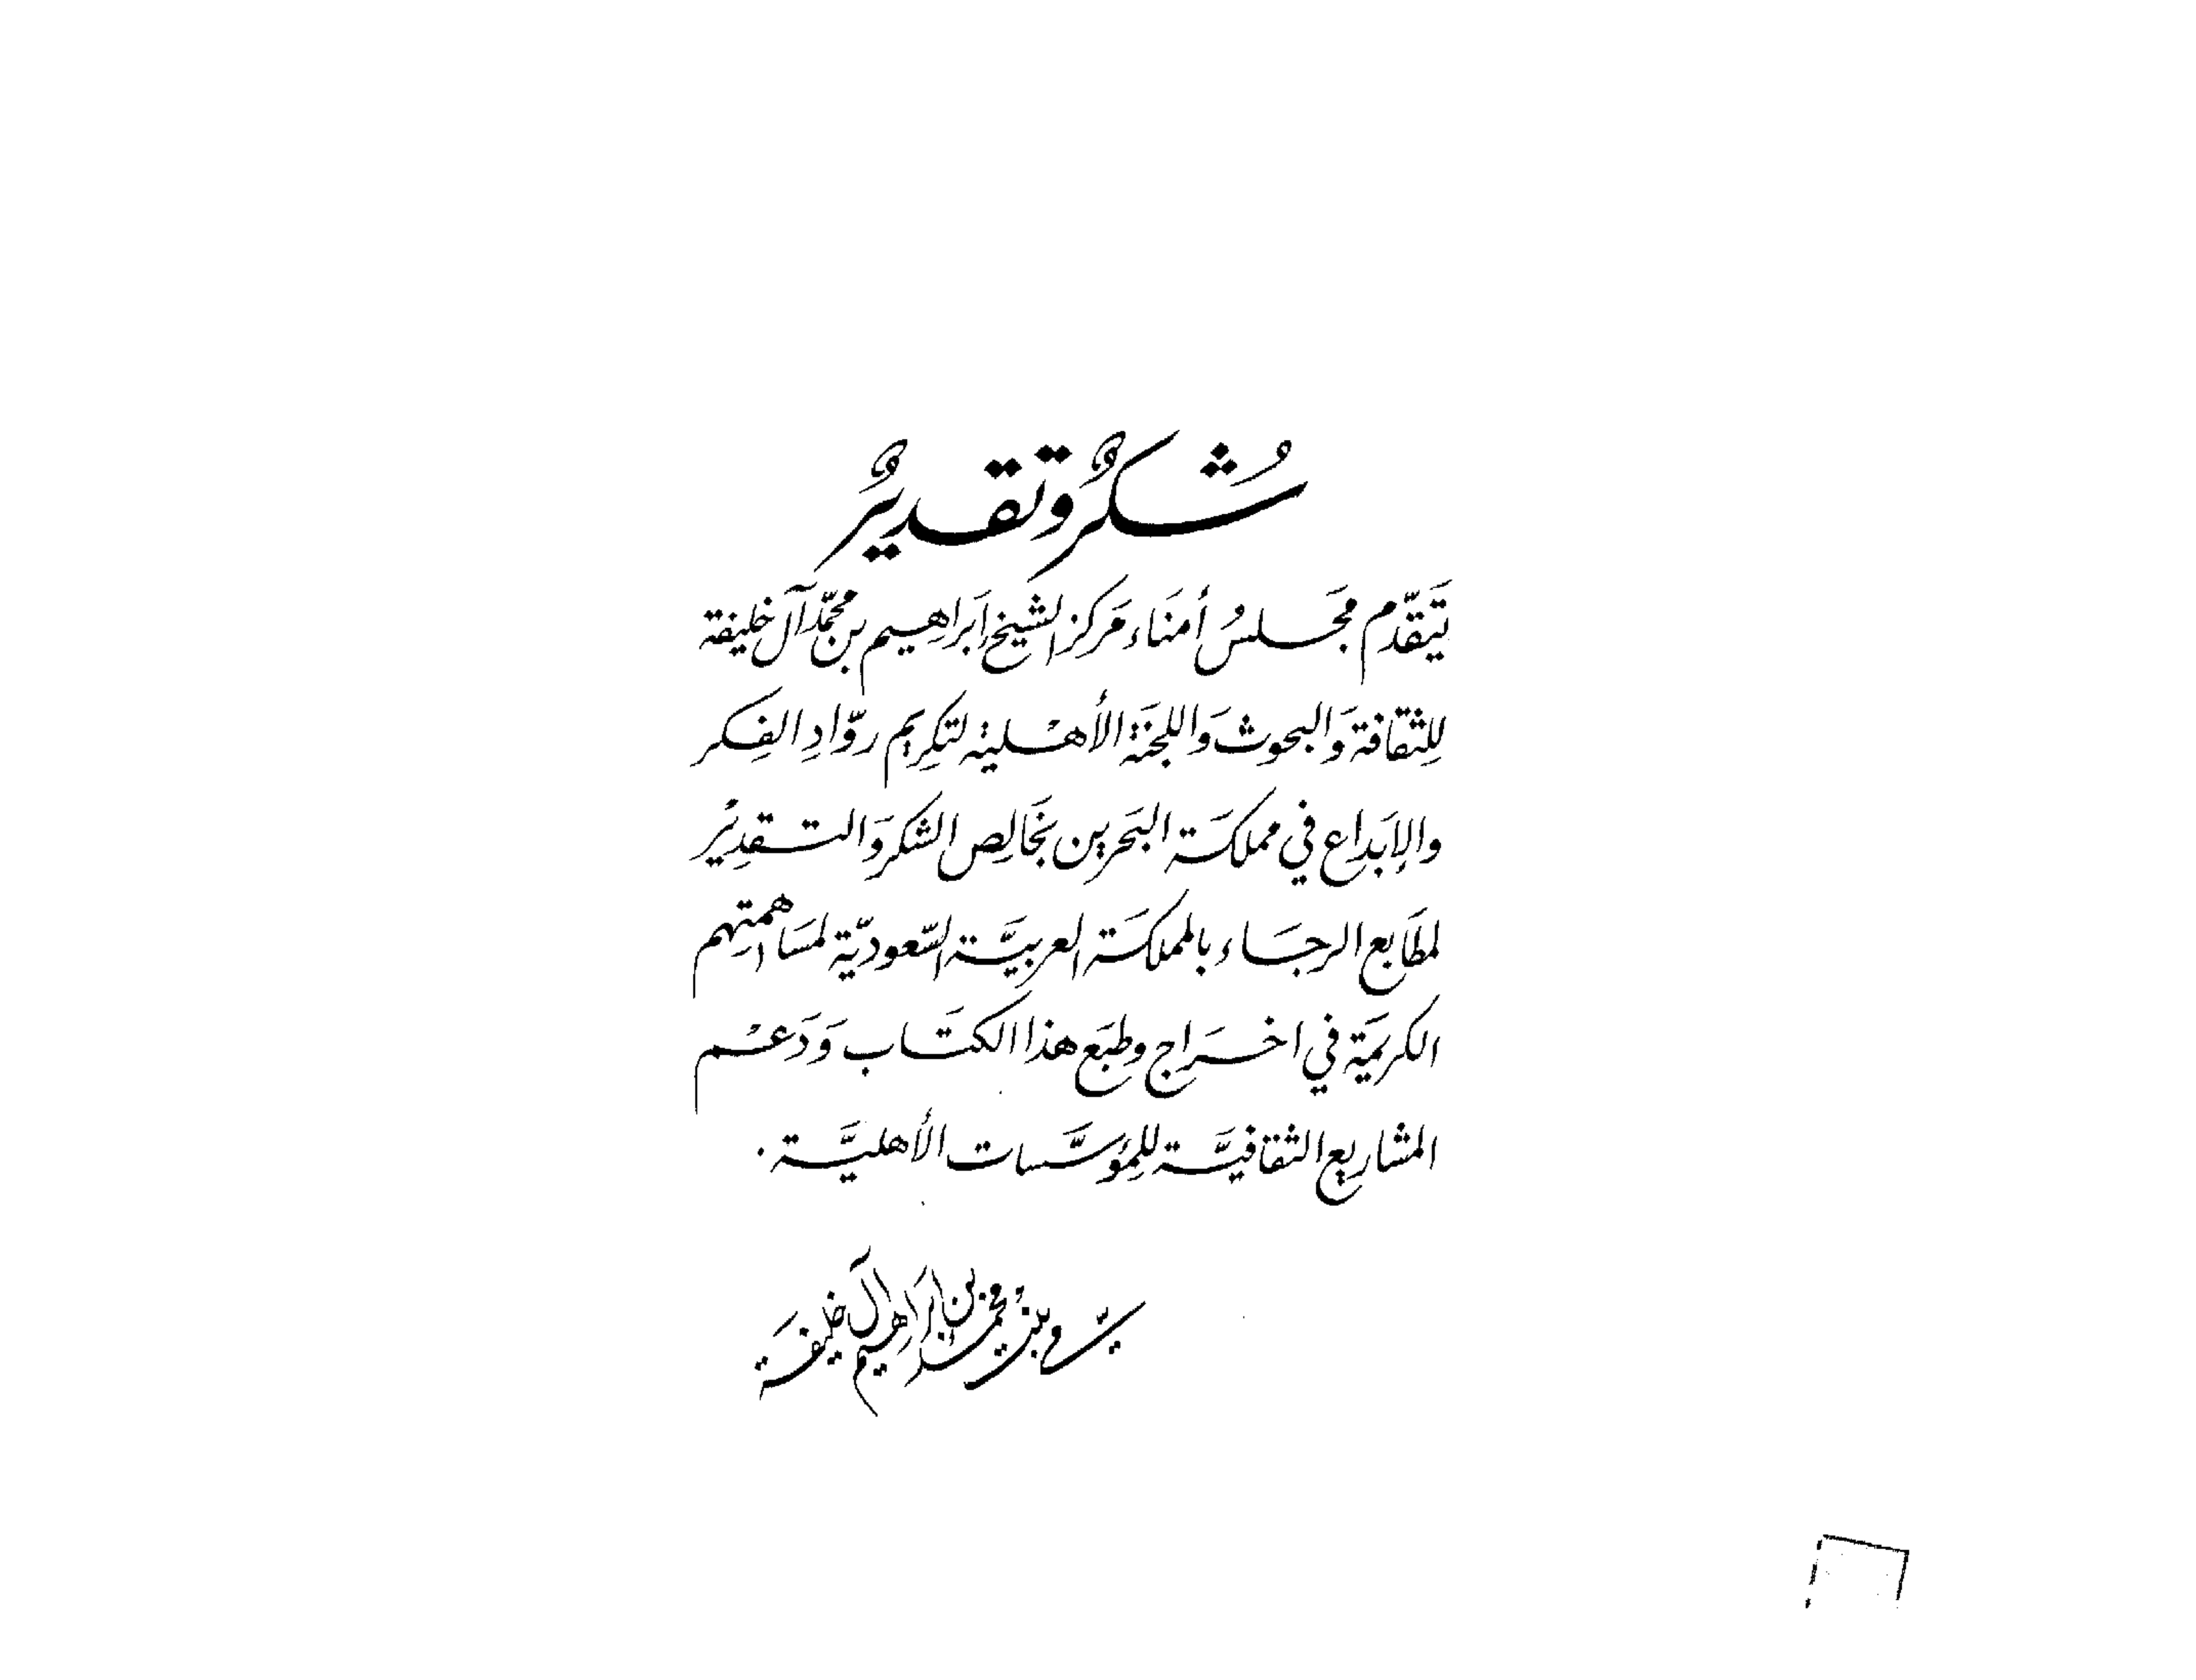 شُكرٌ وتقديرٌ
يَتَقدّم مجَلسُ أمنَاء مَركز الشيخ إبَراهيم بن محمّد آل خليفة
لِلثقافة وَالبحوث وَاللجنَة الأهْلية لتكِريم روّادِ الفِكر
والإبَداع في مملكَة البَحرين بخَالِص الشكر وَالتقدِيْر
لمطَابع الرجَاء بالمملكَة العربيَّة السّعوديّة لمسَاهمتِهم
الكريمَة في اخرَاج وطبَع هذا الكتَاب وَدَعْم
المشاريع الثقافيَّة للِمؤسَّسات الأهليَّة.
مي بنت محمد بن إبراهيم آل خليفة